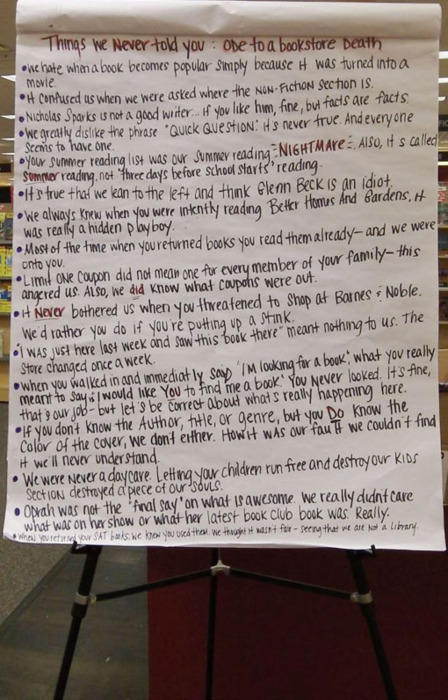 Things we Never told you : ode to a bookstore Death
• we hate when a book becomes popular simply because it was turned into a
movie.
• it confused us when we were asked where the Non-Fiction section is.
• Nicholas Sparks is not a good writer... if you like him, fine, but facts are facts.
• we greatly dislike the phrase "Quick Question." it's never true. And everyone
seems to have one.
• Your summer reading list was our summer reading NIGHTMARE. Also, it's called
summer reading, not "three days before school starts" reading.
• It's true that we lean to the left and think Glenn Beck is an idiot.
• We always knew when you were intently reading Better Homes And Gardens, it
was really a hidden playboy.
• Most of the time when you returned books you read them already - and we were
onto you.
• Limit ONE Coupon did not mean one for every member of your family - this
angered us. Also, we did know what coupons were out.
• it Never bothered us when you threatened to shop at Barnes & Noble.
We'd rather you do if you're putting up a stink.
• "I was just here last week and saw this book there" meant nothing to us. The
store changed once a week.
• when you walked in and immediatly say "I'm looking for a book", what you really
meant to say is "I would like You to find me a book." You Never looked. It's fine,
that's our job - but let's be correct about what's really happening here.
• If you don't know the Author, title, or genre, but you Do know the
color of the cover, we don't either. How it was our fault we couldn't find
it we'll never understand.
• We were never a daycare. Letting your children run free and destroy our KIDS
section destroyed a piece of our souls.
• Oprah was not the "final say" on what is awesome. We really didnt care
what was on her show or what her latest book club book was. Really.
• When you returned your SAT books, we knew you used them. We thought it wasn't fair - seeing that we are Not a Library.